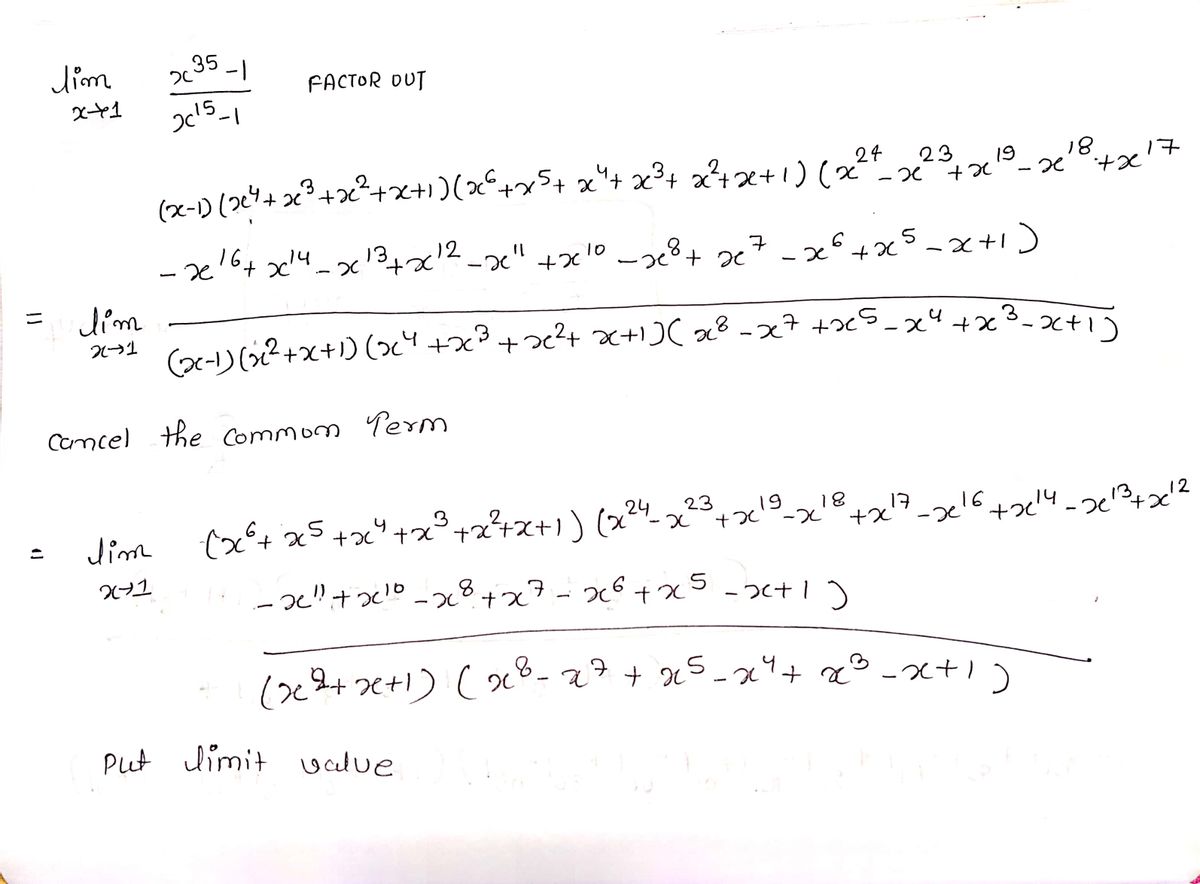 lim x→1 (x^35 - 1)/(x^15 - 1) FACTOR OUT
(x-1)(x^4+x^3+x^2+x+1)(x^6+x^5+x^4+x^3+x^2+x+1)(x^24-x^23+x^19-x^18+x^17
-x^16+x^14-x^13+x^12-x^11+x^10-x^8+x^7-x^6+x^5-x+1)
= lim x→1
(x-1)(x^2+x+1)(x^4+x^3+x^2+x+1)(x^8-x^7+x^5-x^4+x^3-x+1)
Cancel the common Term
= lim x→1 (x^6+x^5+x^4+x^3+x^2+x+1)(x^24-x^23+x^19-x^18+x^17-x^16+x^14-x^13+x^12
-x^11+x^10-x^8+x^7-x^6+x^5-x+1)
(x^2+x+1)(x^8-x^7+x^5-x^4+x^3-x+1)
Put limit value